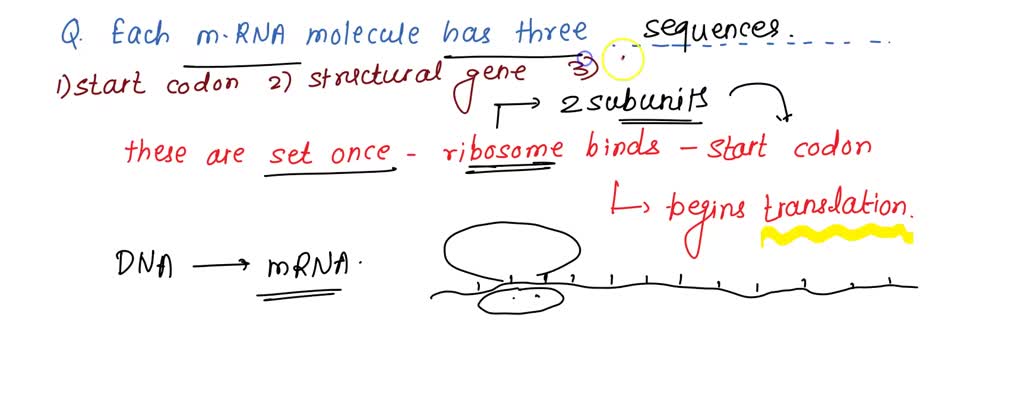 Q. Each m.RNA molecule has three sequences.
1) start codon 2) structural gene 3)
→ 2 subunits
these are set once - ribosome binds - start codon
↳ begins translation.
DNA → mRNA.